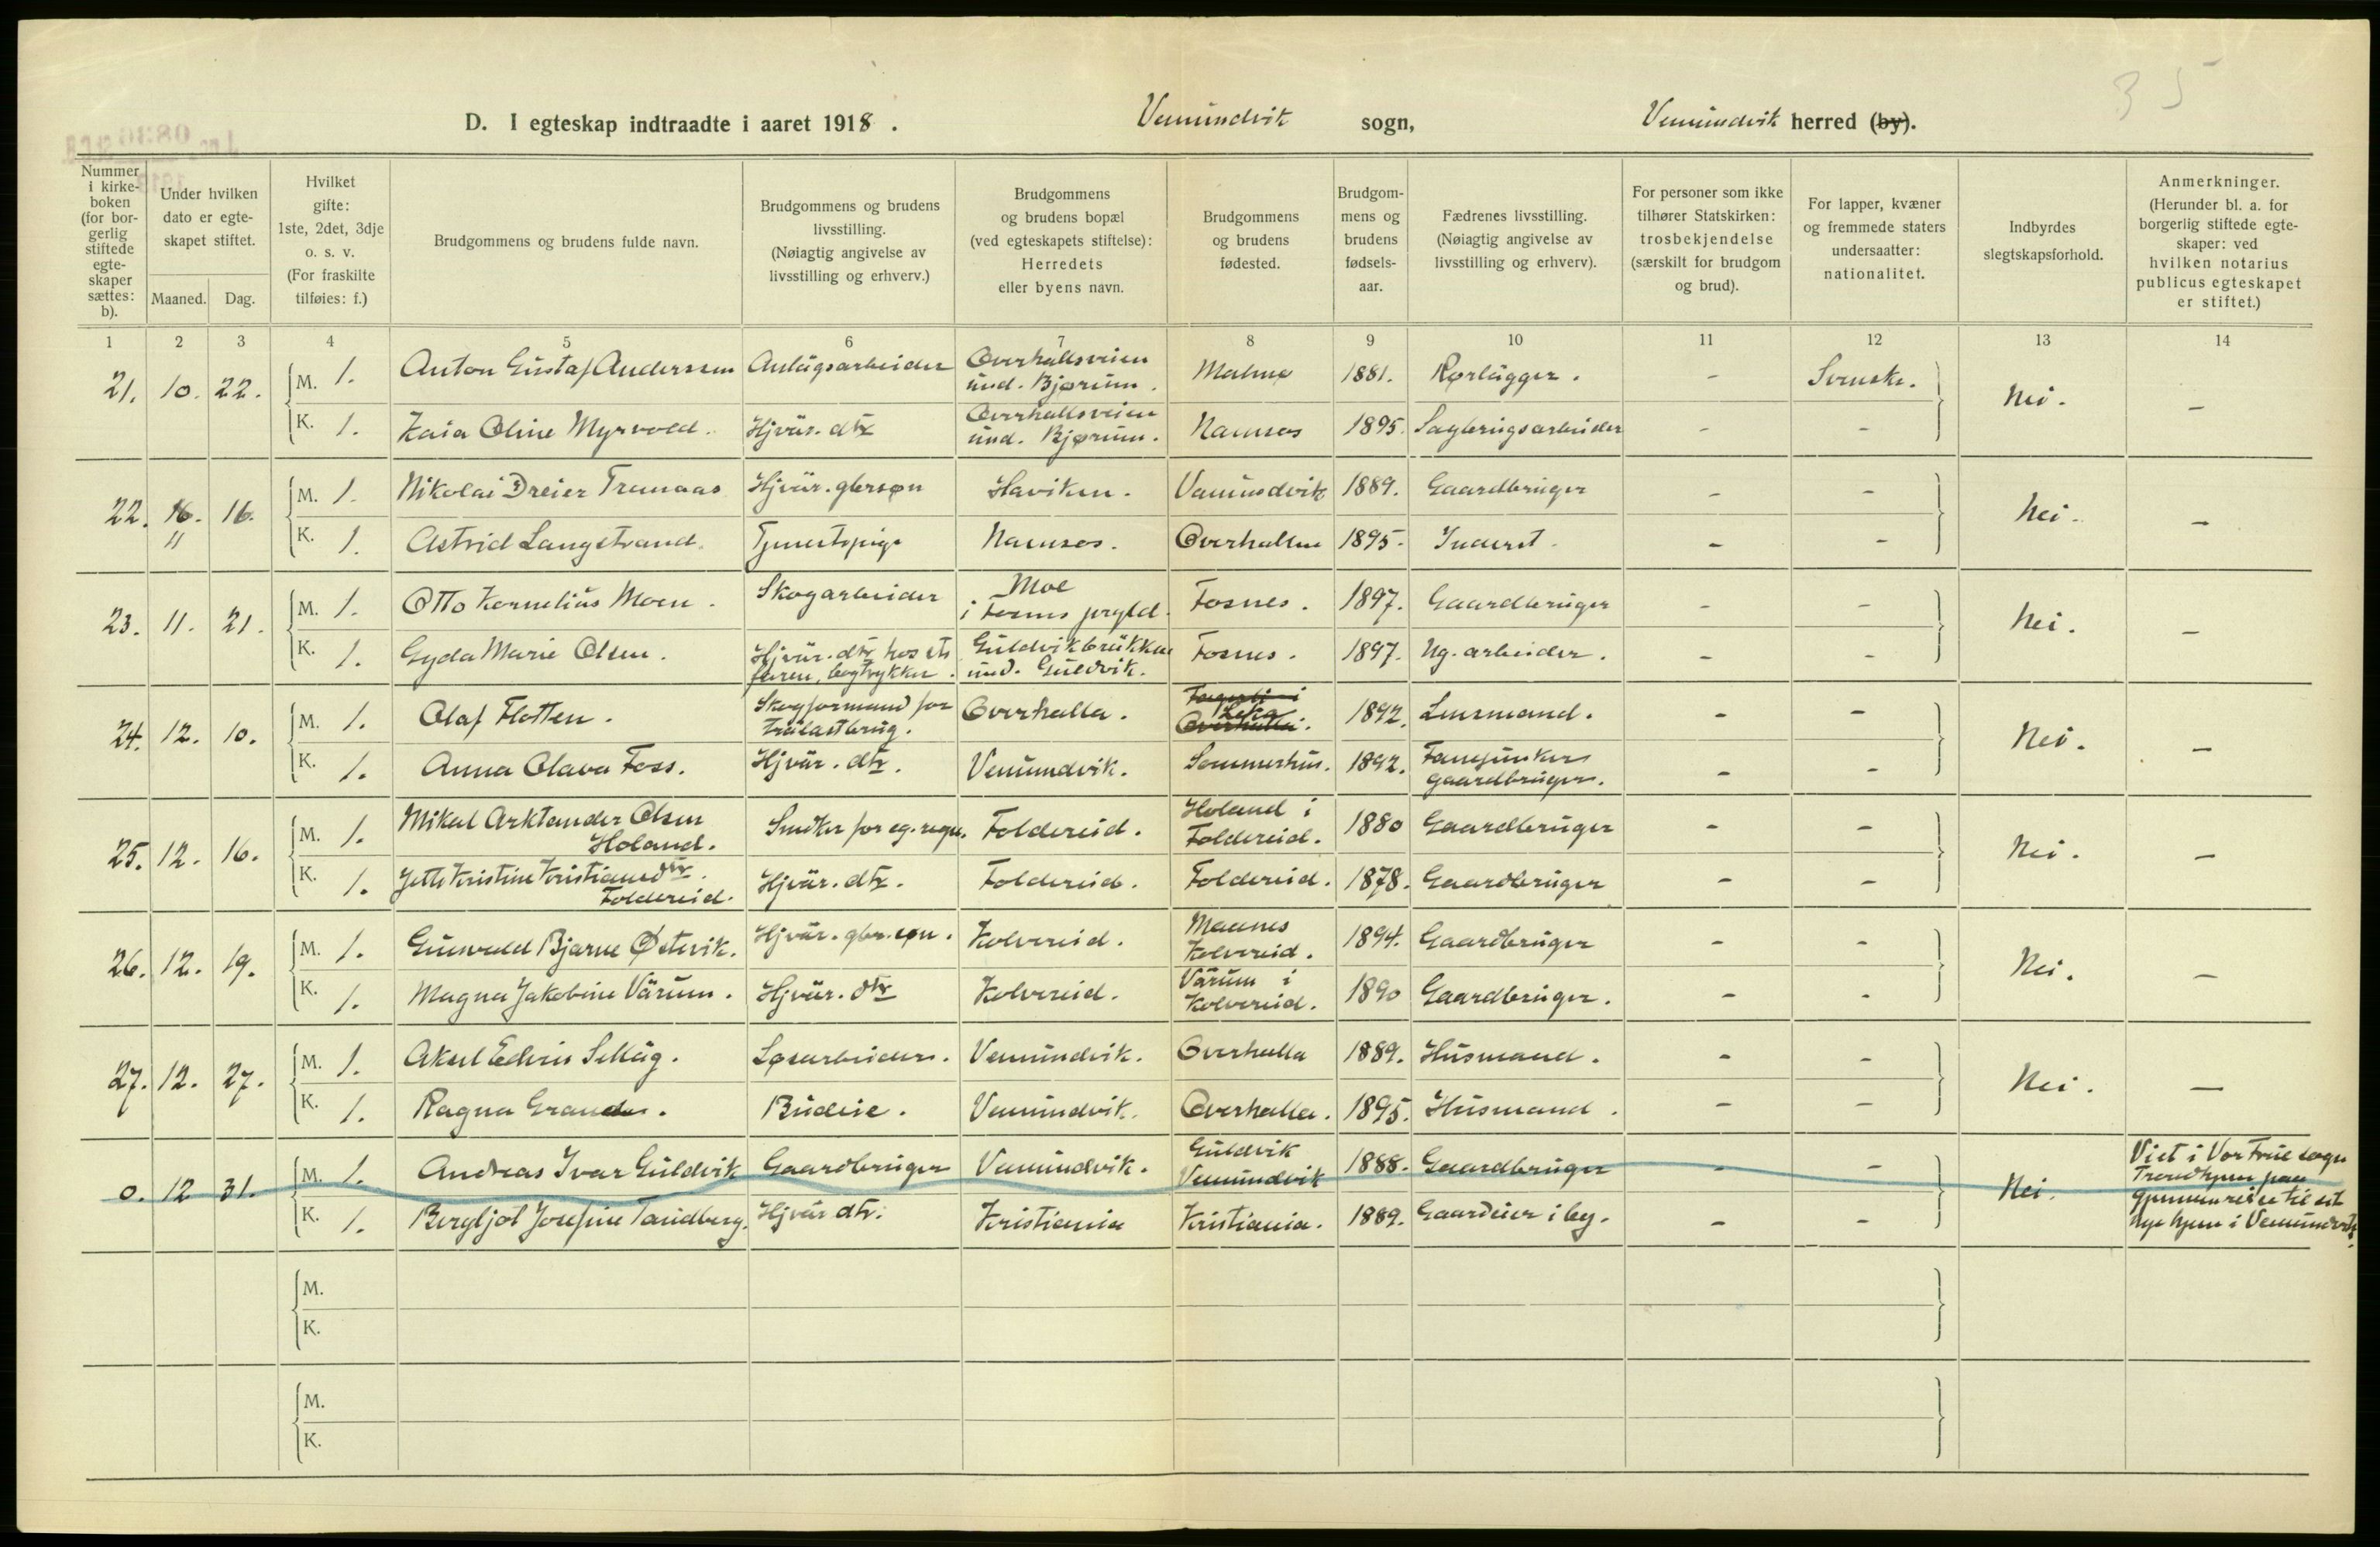 35
D. I egteskap indtraadte i aaret 1918. Vemundvik sogn, Vemundvik herred (by).
Nummer i kirkeboken (for borgerlig stiftede egteskaper sættes: b).
Under hvilken dato er egteskapet stiftet.
Maaned. Dag.
Hvilket gifte: 1ste, 2det, 3dje o. s. v. (For fraskilte tilføies: f.)
Brudgommens og brudens fulde navn.
Brudgommens og brudens livsstilling. (Nøiagtig angivelse av livsstilling og erhverv.)
Brudgommens og brudens bopæl (ved egteskapets stiftelse): Herredets eller byens navn.
Brudgommens og brudens fødested.
Brudgommens og brudens fødselsaar.
Fædrenes livsstilling. (Nøiagtig angivelse av livsstilling og erhverv).
For personer som ikke tilhører Statskirken: trosbekjendelse (særskilt for brudgom og brud).
For lapper, kvæner og fremmede staters undersaatter: nationalitet.
Indbyrdes slegtskapsforhold.
Anmerkninger. (Herunder bl. a. for borgerlig stiftede egteskaper: ved hvilken notarius publicus egteskapet er stiftet.)
1 2 3 4 5 6 7 8 9 10 11 12 13 14
21. 10. 22. M. 1. Anton Gustaf Anderssen Anlægsarbeider Overhallsveien und. Bjørum. Malmø 1881. Rørlægger. - Svenske. Nei. -
K. 1. Kaia Oline Myrvold. Hjvær. dtr Overhallsveien und. Bjørum. Namsos 1895. Sagbrugsarbeider - -
22. 16. 11 16. M. 1. Nikolai Dreier Tranaas Hjvær. gbrsøn Haviken. Vemundvik 1889. Gaardbruger - - Nei. -
K. 1. Astrid Langstrand. Tjenestepige Namsos. Overhallen 1895. Inderst. - -
23. 11. 21. M. 1. Otto Kornelius Moen. Skogarbeider Moe i Fosnes prgld. Fosnes. 1897. Gaardbruger - - Nei. -
K. 1. Gyda Marie Olsen. Hjvær. dtr hos faren, bogtrykker. Guldvikbrækken und. Guldvik. Fosnes. 1897. Ug. arbeider. - -
24. 12. 10. M. 1. Olaf Flotten. Skogformand for trælastbrug. Overhalla. Leka Overhalla. 1892. Lensmand. - - Nei. -
K. 1. Anna Olava Foss. Hjvær. dtr. Vemundvik. Sommerhus. 1892. Fanejunker gaardbruger. - -
25. 12. 16. M. 1. Mikal Arktander Olsen Holand. Snedker for eg. regn. Foldereid. Holand i Foldereid. 1880 Gaardbruger - - Nei. -
K. 1. Jette Kristine Kristiansdtr. Foldereid. Hjvær. dtr. Foldereid. Foldereid. 1878. Gaardbruger - -
26. 12. 19. M. 1. Gunvald Bjarne Østvik. Hjvær. gbr. søn. Kolvereid. Maanes Kolvereid. 1894. Gaardbruger - - Nei. -
K. 1. Magna Jakobine Værum. Hjvær. dtr Kolvereid. Værum i Kolvereid. 1890 Gaardbruger. - -
27. 12. 27. M. 1. Aksel Edvin Selläg. Løsarbeider. Vemundvik. Overhalla 1889. Husmand. - - Nei. -
K. 1. Ragna Grande. Budeie. Vemundvik. Overhalla. 1895. Husmand. - -
0. 12 31. M. 1. Andreas Ivar Guldvik Gaardbruger Vemundvik. Guldvik Vemundvik 1888. Gaardbruger - - Nei. Viet i Vor Frue sogn Trondhjem paa gjennemreise til sit nye hjem i Vemundvik.
K. 1. Bergljot Josefine Tandberg. Hjvær dtr. Kristiania Kristiania. 1889. Gaardeier i by. - -
M.
K.
M.
K.